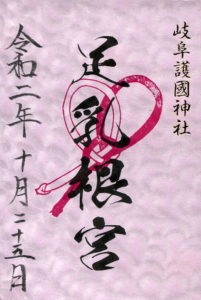 岐阜護國神社
足乳根宮
令和二年十月二十五日